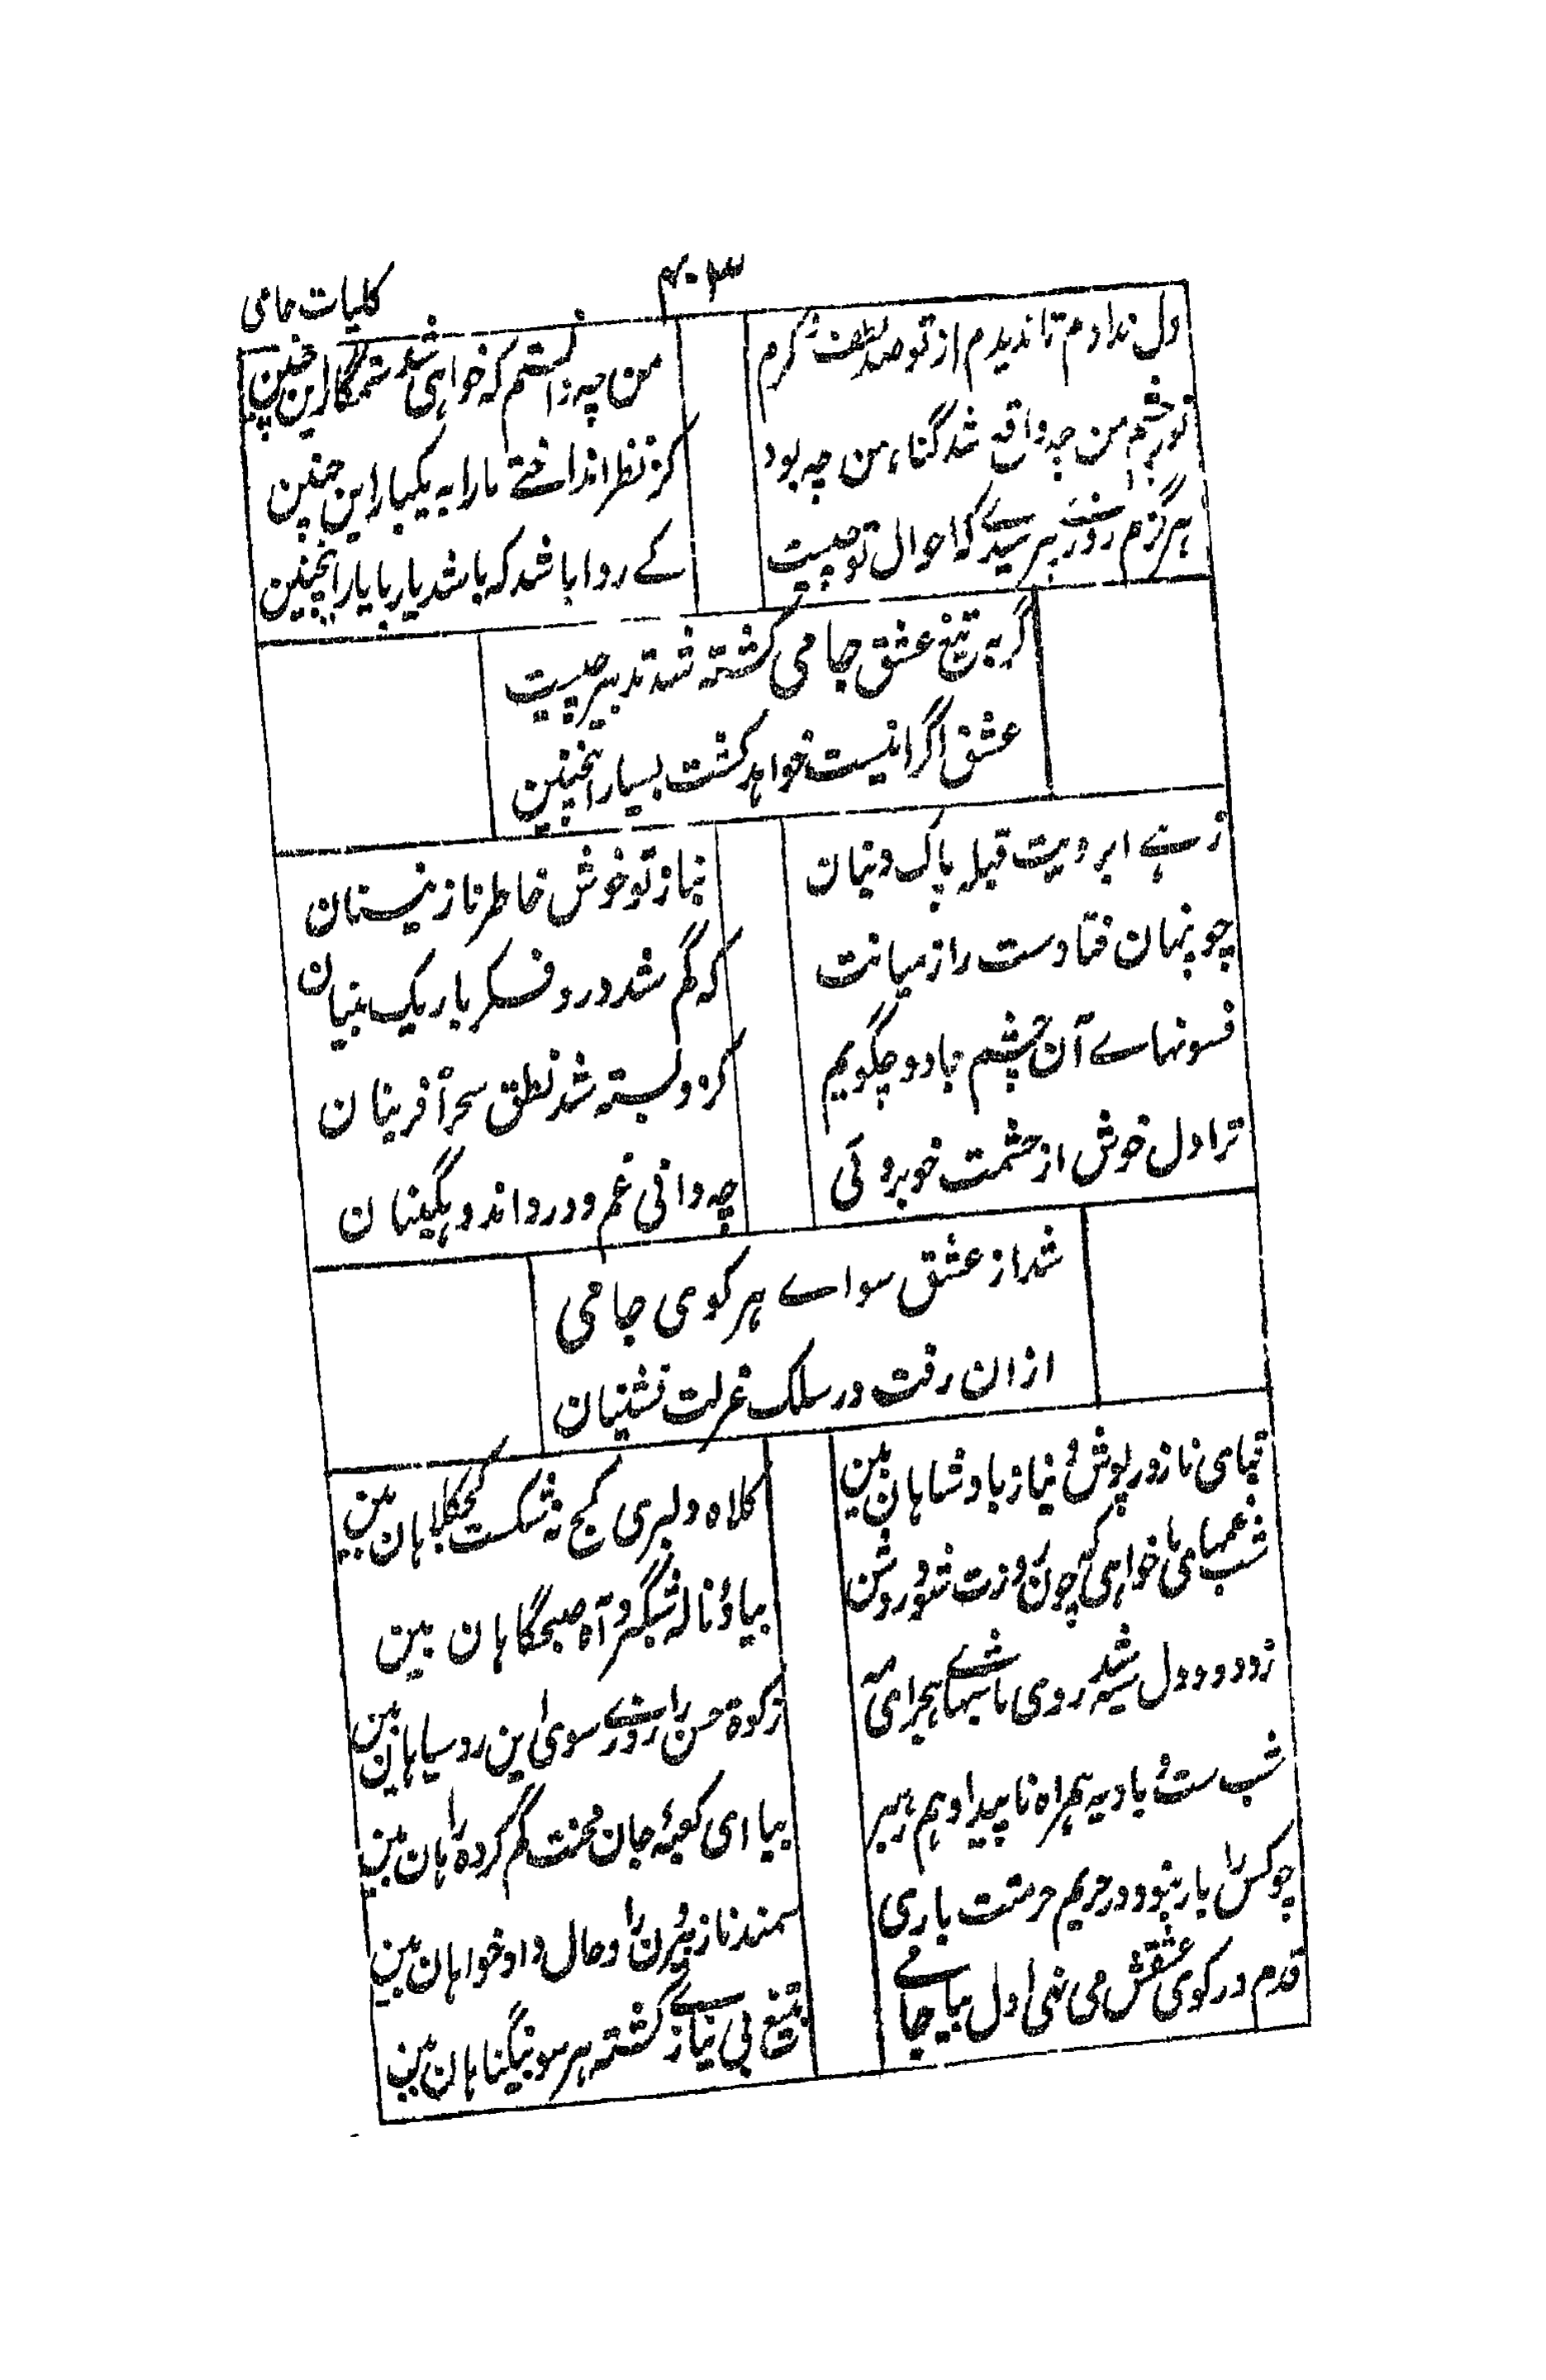 ۴۰۳
کلیات جامی
دل ندادم تا ندیدم از تو صد لطف و کرم
من چه دانستم که خواهی شد ستمگار این چنین
نور چشم من چه واقع شد گناه من چه بود
کز نظر انداختے مارا به یکبار این چنین
هرگزم روزے نپرسیدے که احوال تو چیست
کے روا باشد که باشد یار با یار اینچنین
گر به تیغ عشق جامی کشته شد تدبیر چیست
عشق اگر اینست خواهد کشت بسیار اینچنین
زهے ابرویت قبله پاک دینان
نیاز تو خوش خاطر نازنینان
چو پنهان فتادست راز میانت
که گم شد درو فکر باریک بینان
فسونهاے آن چشم جادو چگویم
کزو بسته شد نطق سحر آفرینان
ترا دل خوش از حشمت خوبروئی
چه دانی غم و درد اندوهگینان
شد از عشق سواے هر کوی جامی
ازان رفت در سلک عزلت نشینان
قبای ناز در پوش و نیاز بادشاهان بین
کلاه دلبری کج نه شکست کجکلاهان بین
شب غمهای ما خواهی که چون روزت شود روشن
بیا و نالهٔ شبگیر و آه صبحگاهان بین
ز دود دل سیه شد روی ما شبهاے هجر ای مه
زکوة حسن را روزے سوی این روسیاهان بین
شب ست و بادیه همراه ناپیدا و هم رهبر
بیا ای کعبهٔ جان محنت گم کرده راهان بین
چو کس را بار نبود در حریم حرمتت باری
سمند ناز بیرون ران و حال دادخواهان بین
قدم در کوی عشقش می نهی اول بیا جامے
بتیغ بی نیازے کشته هر سو بیگناهان بین